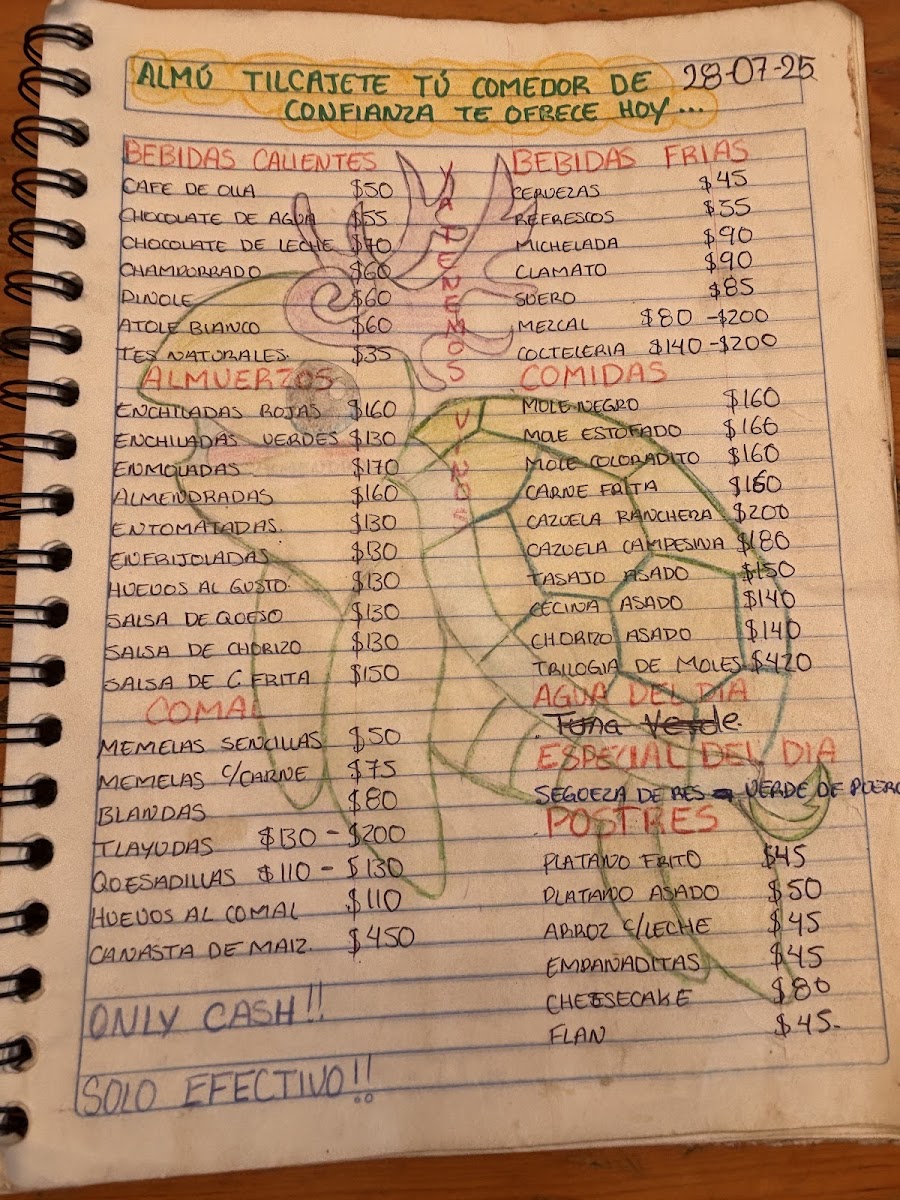 ALMÚ TILCAJETE TÚ COMEDOR DE 28-07-25
CONFIANZA TE OFRECE HOY...
BEBIDAS CALIENTES
CAFE DE OLLA $50
CHOCOLATE DE AGUA $55
CHOCOLATE DE LECHE $70
CHAMPURRADO $60
PINOLE $60
ATOLE BLANCO $60
TES NATURALES. $35
ALMUERZOS
ENCHILADAS ROJAS $160
ENCHILADAS VERDES $130
ENMOLADAS $170
ALMENDRADAS $160
ENTOMATADAS. $130
ENFRIJOLADAS $130
HUEVOS AL GUSTO. $130
SALSA DE QUESO $130
SALSA DE CHORIZO $130
SALSA DE C. FRITA $150
COMAL
MEMELAS SENCILLAS $50
MEMELAS C/CARNE $75
BLANDAS $80
TLAYUDAS $130 - $200
QUESADILLAS $110 - $130
HUEVOS AL COMAL $110
CANASTA DE MAIZ. $450
ONLY CASH!!
SOLO EFECTIVO!!
YA TENEMOS
BEBIDAS FRIAS
CERVEZAS $45
REFRESCOS $55
MICHELADA $90
CLAMATO $90
SUERO $85
MEZCAL $80 - $200
COCTELERIA $140 - $200
COMIDAS
MOLE NEGRO $160
MOLE ESTOFADO $160
MOLE COLORADITO $160
CARNE FRITA $160
CAZUELA RANCHERA $200
CAZUELA CAMPESINA $180
TASAJO ASADO $150
CECINA ASADO $140
CHORIZO ASADO $140
TRILOGIA DE MOLES $420
AGUA DEL DIA
Tuna Verde.
ESPECIAL DEL DIA
SEGUEZA DE RES VERDE DE PUERC
POSTRES
PLATANO FRITO $45
PLATANO ASADO $50
ARROZ C/LECHE $45
EMPANADITAS $45
CHEESECAKE $80
FLAN $45.